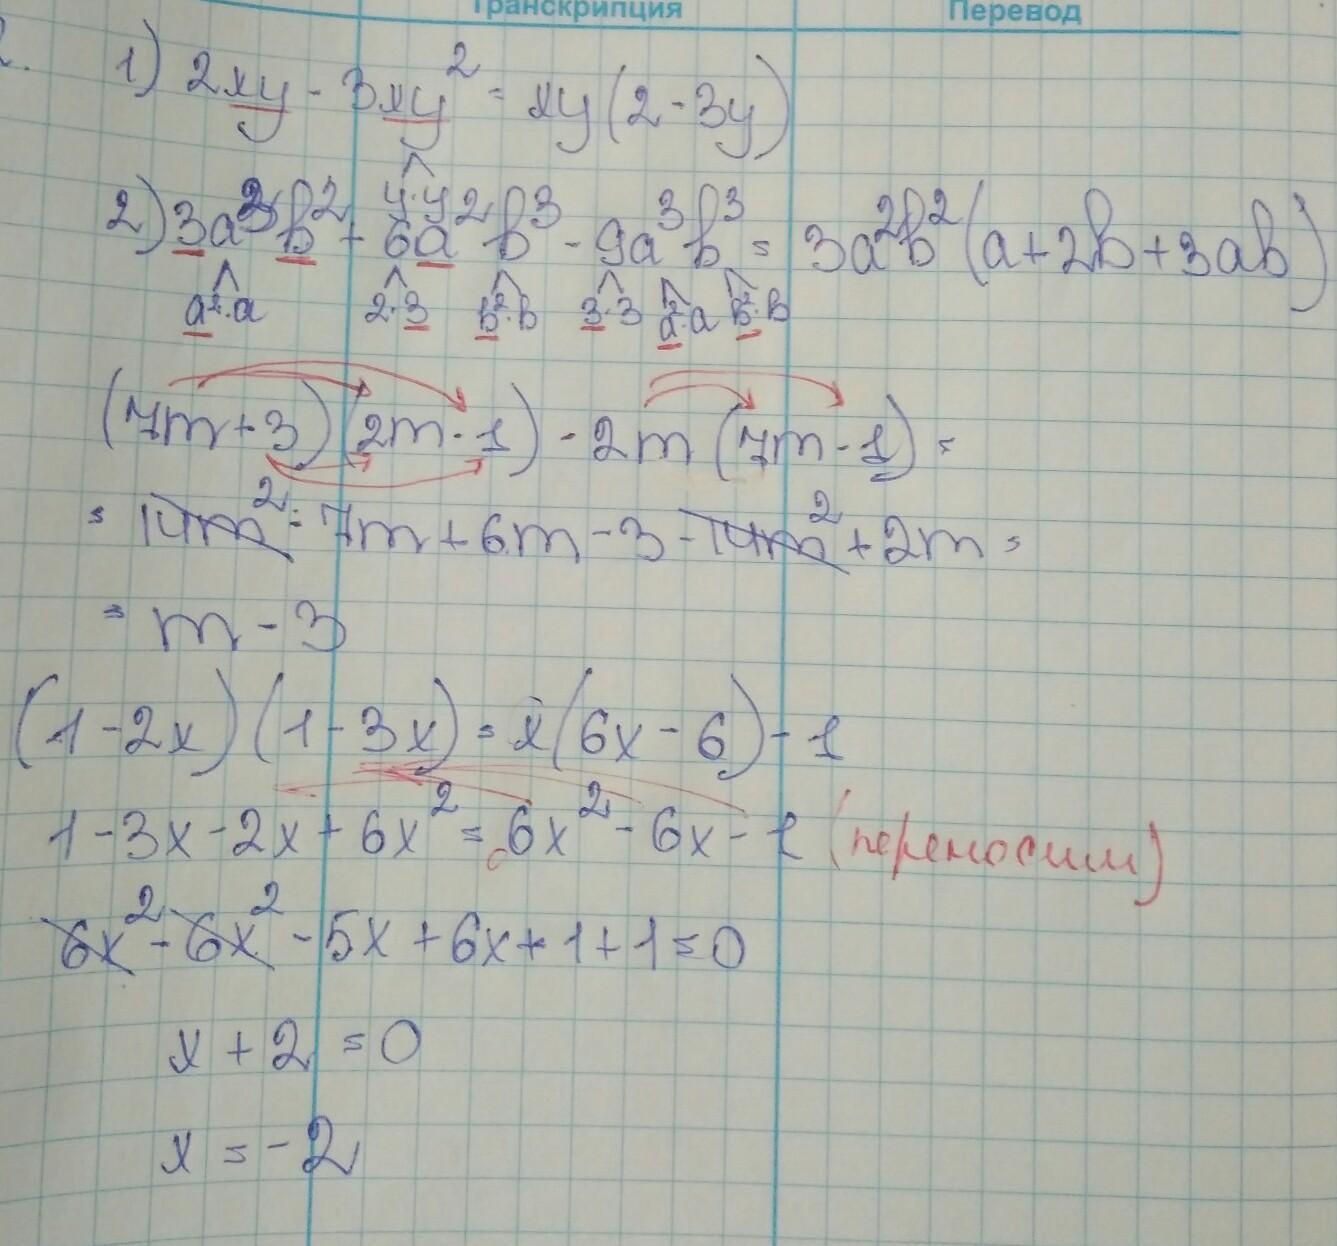 Транскрипция Перевод
2. 1) 2xy - 3xy² = xy(2 - 3y)
y·y
2) 3a³b² + 6a²b³ - 9a³b³ = 3a²b²(a+2b+3ab)
a²·a 2·3 b²·b 3·3 a²·a b²·b
(7m+3)(2m-1) - 2m(7m-1) =
= 14m² - 7m + 6m - 3 - 14m² + 2m =
= m - 3
(1-2x)(1-3x) = x(6x-6)-1
1-3x-2x+6x² = 6x² - 6x - 1 (переносим)
6x² - 6x² - 5x + 6x + 1 + 1 = 0
x + 2 = 0
x = -2